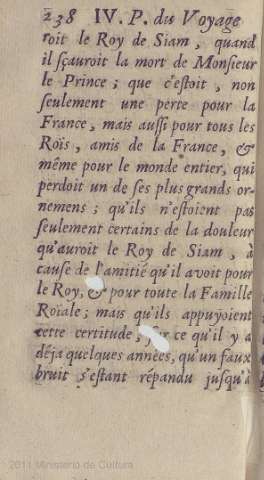 238 IV. P. du Voyage
roit le Roy de Siam, quand
il sçauroit la mort de Monsieur
le Prince ; que c'estoit , non
seulement une perte pour la
France, mais aussi pour tous les
Roïs, amis de la France, &
même pour le monde entier, qui
perdoit un de ses plus grands or-
nemens ; qu'ils n'estoient pas
seulement certains de la douleur
qu'auroit le Roy de Siam , à
cause de l'amitié qu'il avoit pour
le Roy, & pour toute la Famille
Roiale ; mais qu'ils appuyoient
cette certitude, ce qu'il y a
déja quelques années, qu'un faux
bruit s'estant répandu jusqu'à
2011 Ministerio de Cultura